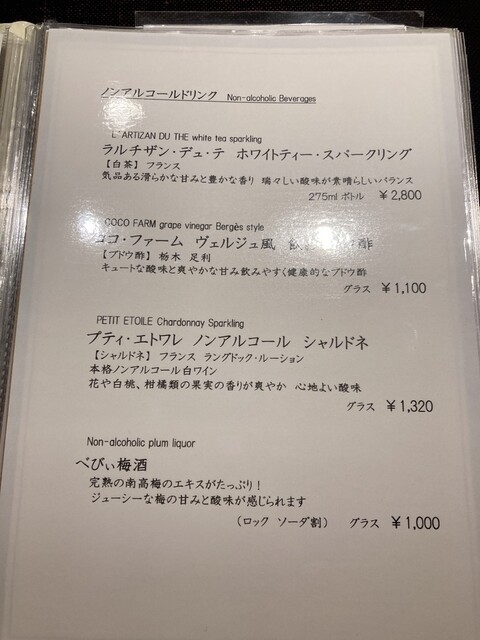 ノンアルコールドリンク Non-alcoholic Beverages
L'ARTIZAN DU THE white tea sparkling
ラルチザン・デュ・テ ホワイトティー・スパークリング
【白茶】 フランス
気品ある滑らかな甘みと豊かな香り 瑞々しい酸味が素晴らしいバランス
275ml ボトル ￥2,800
COCO FARM grape vinegar Bergès style
ココ・ファーム ヴェルジュ風 酢
【ブドウ酢】 栃木 足利
キュートな酸味と爽やかな甘み飲みやすく健康的なブドウ酢
グラス ￥1,100
PETIT ETOILE Chardonnay Sparkling
プティ・エトワレ ノンアルコール シャルドネ
【シャルドネ】 フランス ラングドック・ルーション
本格ノンアルコール白ワイン
花や白桃、柑橘類の果実の香りが爽やか 心地よい酸味
グラス ￥1,320
Non-alcoholic plum liquor
べびぃ梅酒
完熟の南高梅のエキスがたっぷり！
ジューシーな梅の甘みと酸味が感じられます
（ロック ソーダ割） グラス ￥1,000